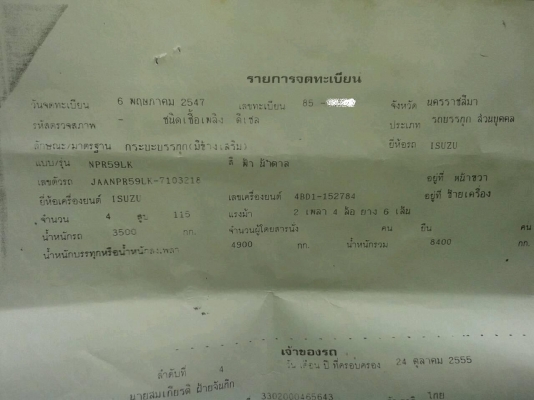 รายการจดทะเบียน
วันจดทะเบียน 6 พฤษภาคม 2547 เลขทะเบียน 85 - จังหวัด นครราชสีมา
รหัสตรวจสภาพ - ชนิดเชื้อเพลิง ดีเซล ประเภท รถบรรทุก ส่วนบุคคล
ลักษณะ/มาตรฐาน กระบะบรรทุก(มีข้างเสริม) ยี่ห้อรถ ISUZU
แบบ/รุ่น NPR59LK สี ฟ้า น้ำตาล
เลขตัวรถ JAANPR59LK-7103218 อยู่ที่ หน้าขวา
ยี่ห้อเครื่องยนต์ ISUZU เลขเครื่องยนต์ 4BD1-152784 อยู่ที่ ซ้ายเครื่อง
จำนวน 4 สูบ 115 แรงม้า 2 เพลา 4 ล้อ ยาง 6 เส้น
น้ำหนักรถ 3500 กก. จำนวนผู้โดยสารนั่ง คน ยืน คน
น้ำหนักบรรทุกหรือน้ำหนักลงเพลา 4900 กก. น้ำหนักรวม 8400 กก.
เจ้าของรถ
ลำดับที่ 4 วัน เดือน ปี ที่ครอบครอง 24 ตุลาคม 2555
นายสมเกียรติ 3302000465643 ไทย